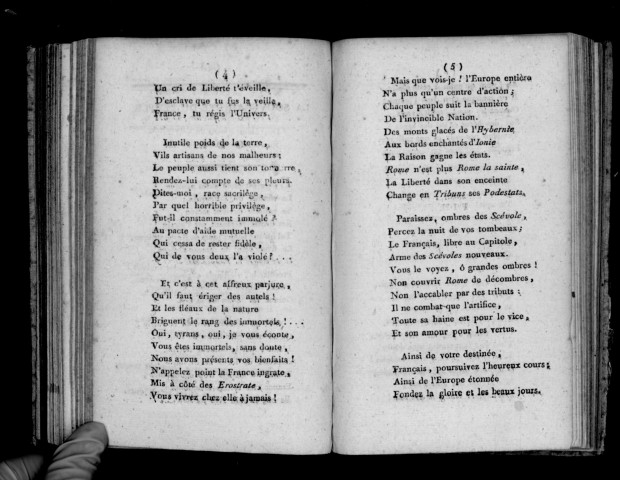 ( 4 )
Un cri de Liberté t'éveille,
D'esclave que tu fus la veille,
France, tu régis l'Univers.
Inutile poids de la terre,
Vils artisans de nos malheurs;
Le peuple aussi tient son tonnerre,
Rendez-lui compte de ses pleurs.
Dites-moi, race sacrilége,
Par quel horrible privilége,
Fut-il constamment immolé ?
Au pacte d'aide mutuelle
Qui cessa de rester fidèle,
Qui de vous deux l'a violé ? . . .
Et c'est à cet affreux parjure,
Qu'il faut ériger des autels !
Et les fléaux de la nature
Briguent le rang des immortels ! . . .
Oui, tyrans, oui, je vous écoute,
Vous êtes immortels, sans doute,
Nous avons présents vos bienfaits !
N'appelez point la France ingrate,
Mis à côté des Erostrate,
Vous vivrez chez elle à jamais !
( 5 )
Mais que vois-je ! l'Europe entière
N'a plus qu'un centre d'action;
Chaque peuple suit la bannière
De l'invincible Nation.
Des monts glacés de l'Hybernie
Aux bords enchantés d'Ionie
La Raison gagne les états.
Rome n'est plus Rome la sainte,
La Liberté dans son enceinte
Change en Tribuns ses Podestats.
Paraissez, ombres des Scévole,
Percez la nuit de vos tombeaux;
Le Français, libre au Capitole,
Arme des Scévoles nouveaux.
Vous le voyez, ô grandes ombres !
Non couvrir Rome de décombres,
Non l'accabler par des tributs :
Il ne combat-que l'artifice,
Toute sa haine est pour le vice,
Et son amour pour les vertus.
Ainsi de votre destinée,
Français, poursuivez l'heureux cours;
Ainsi de l'Europe étonnée
Fondez la gloire et les beaux jours.